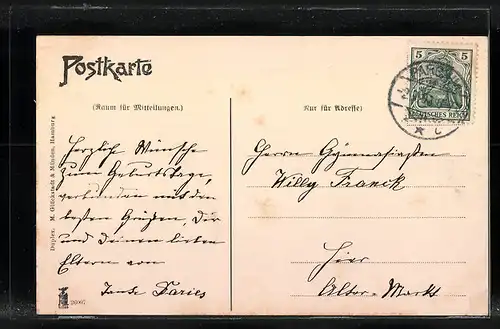 Postkarte
(Raum für Mitteilungen.)
Herzliche Wünsche
zum Geburtstage,
verbunden mit den
besten Grüßen, Dir
und Deinen lieben
Eltern von
Tante Maries
Duplex. M. Glückstadt & Münden, Hamburg
26007
5 5
DEUTSCHES REICH
(Nur für Adresse)
Herrn Gymnasiasten
Willy Franck
Hier
Alter-Markt